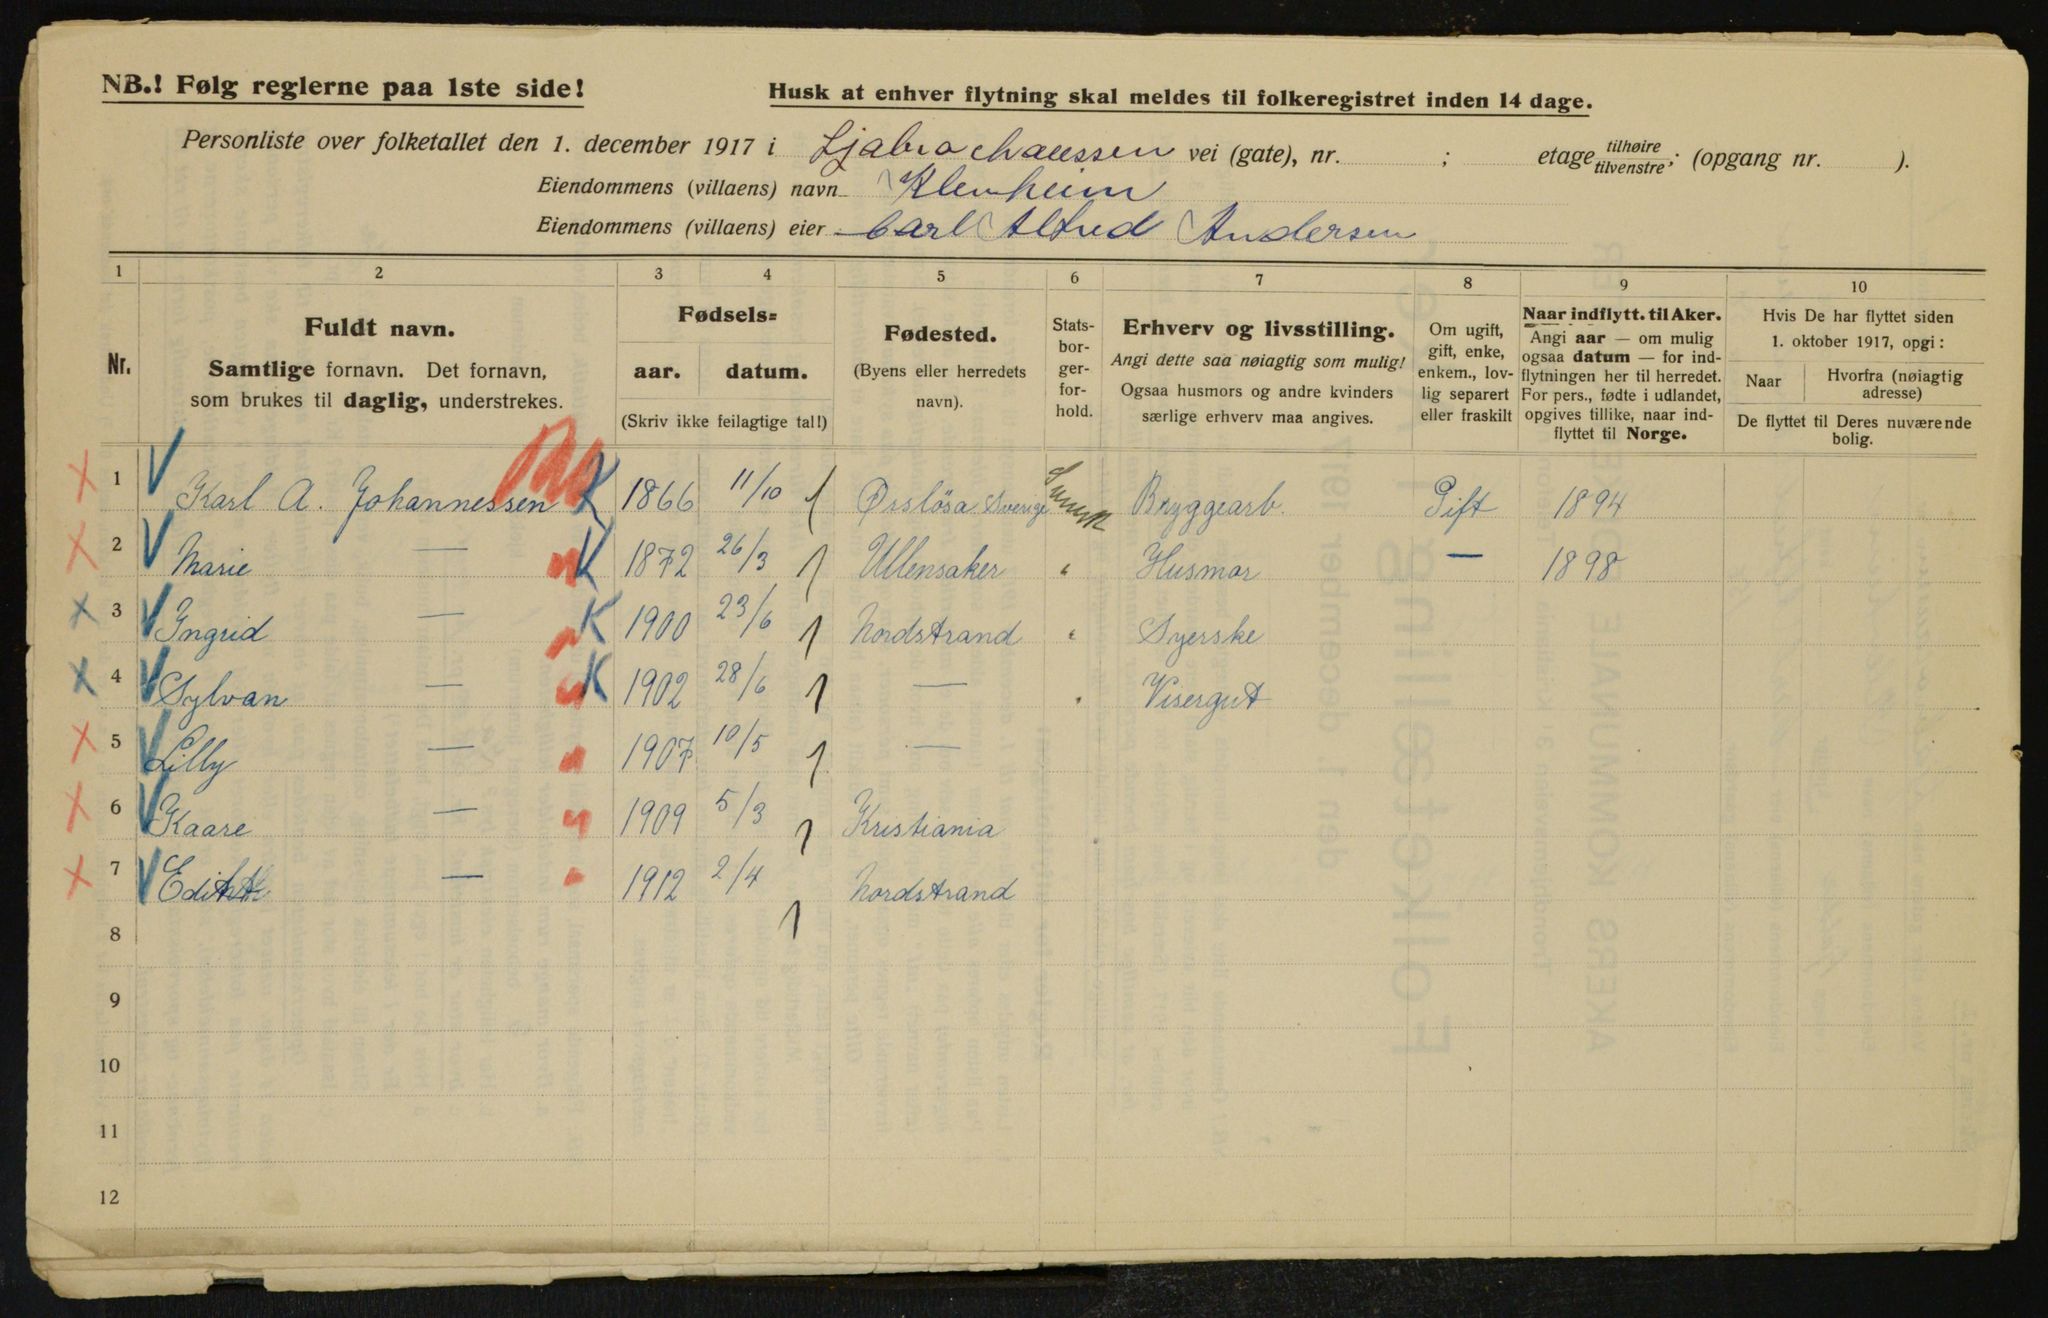 NB.! Følg reglerne paa 1ste side!
Husk at enhver flytning skal meldes til folkeregistret inden 14 dage.
Personliste over folketallet den 1. december 1917 i Ljabrochausseen vei (gate), nr. ; etage tilhøire tilvenstre; (opgang nr. ).
Eiendommens (villaens) navn Klemheim
Eiendommens (villaens) eier Carl Alfred Andersen
1 2 3 4 5 6 7 8 9 10
Nr.
Fuldt navn.
Samtlige fornavn. Det fornavn,
som brukes til daglig, understrekes.
Fødsels=
aar. datum.
(Skriv ikke feilagtige tal!)
Fødested.
(Byens eller herredets
navn).
Stats-
bor-
ger-
for-
hold.
Erhverv og livsstilling.
Angi dette saa nøiagtig som mulig!
Ogsaa husmors og andre kvinders
særlige erhverv maa angives.
Om ugift,
gift, enke,
enkem., lov-
lig separert
eller fraskilt
Naar indflytt. til Aker.
Angi aar — om mulig
ogsaa datum — for ind-
flytningen her til herredet.
For pers., fødte i udlandet,
opgives tillike, naar ind-
flyttet til Norge.
Hvis De har flyttet siden
1. oktober 1917, opgi:
Naar
Hvorfra (nøiagtig
adresse)
De flyttet til Deres nuværende
bolig.
1 Karl A. Johannessen K 1866 11/10 Örslösa Sverige Svensk Bryggearb. Gift 1894
2 Marie — K 1872 26/3 Ullensaker " Husmor — 1898
3 Ingrid — K 1900 23/6 Nordstrand " Syerske
4 Sylvan — K 1902 28/6 — " Visergut
5 Lilly — 1907 10/5 —
6 Kaare — 1909 5/3 Kristiania
7 Edith — 1912 2/4 Nordstrand
8
9
10
11
12